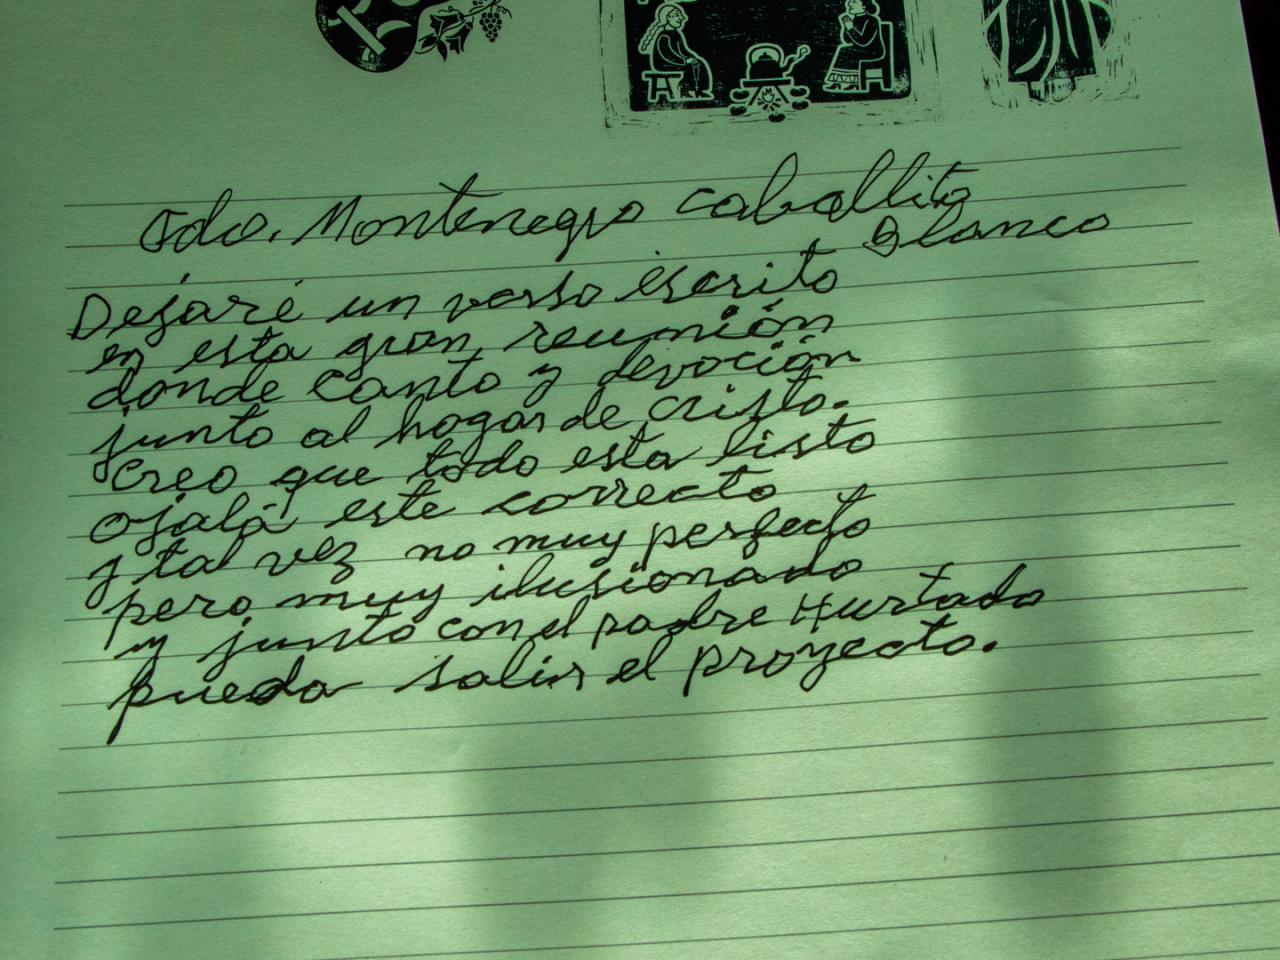 Edo. Montenegro caballito
Blanco
Dejaré un verso escrito
en esta gran reunión
donde canto y devoción
junto al hogar de cristo.
creo que todo esta listo
ojalá este correcto
y tal vez no muy perfecto
pero muy ilusionado
y junto con el padre Hurtado
pueda salir el proyecto.